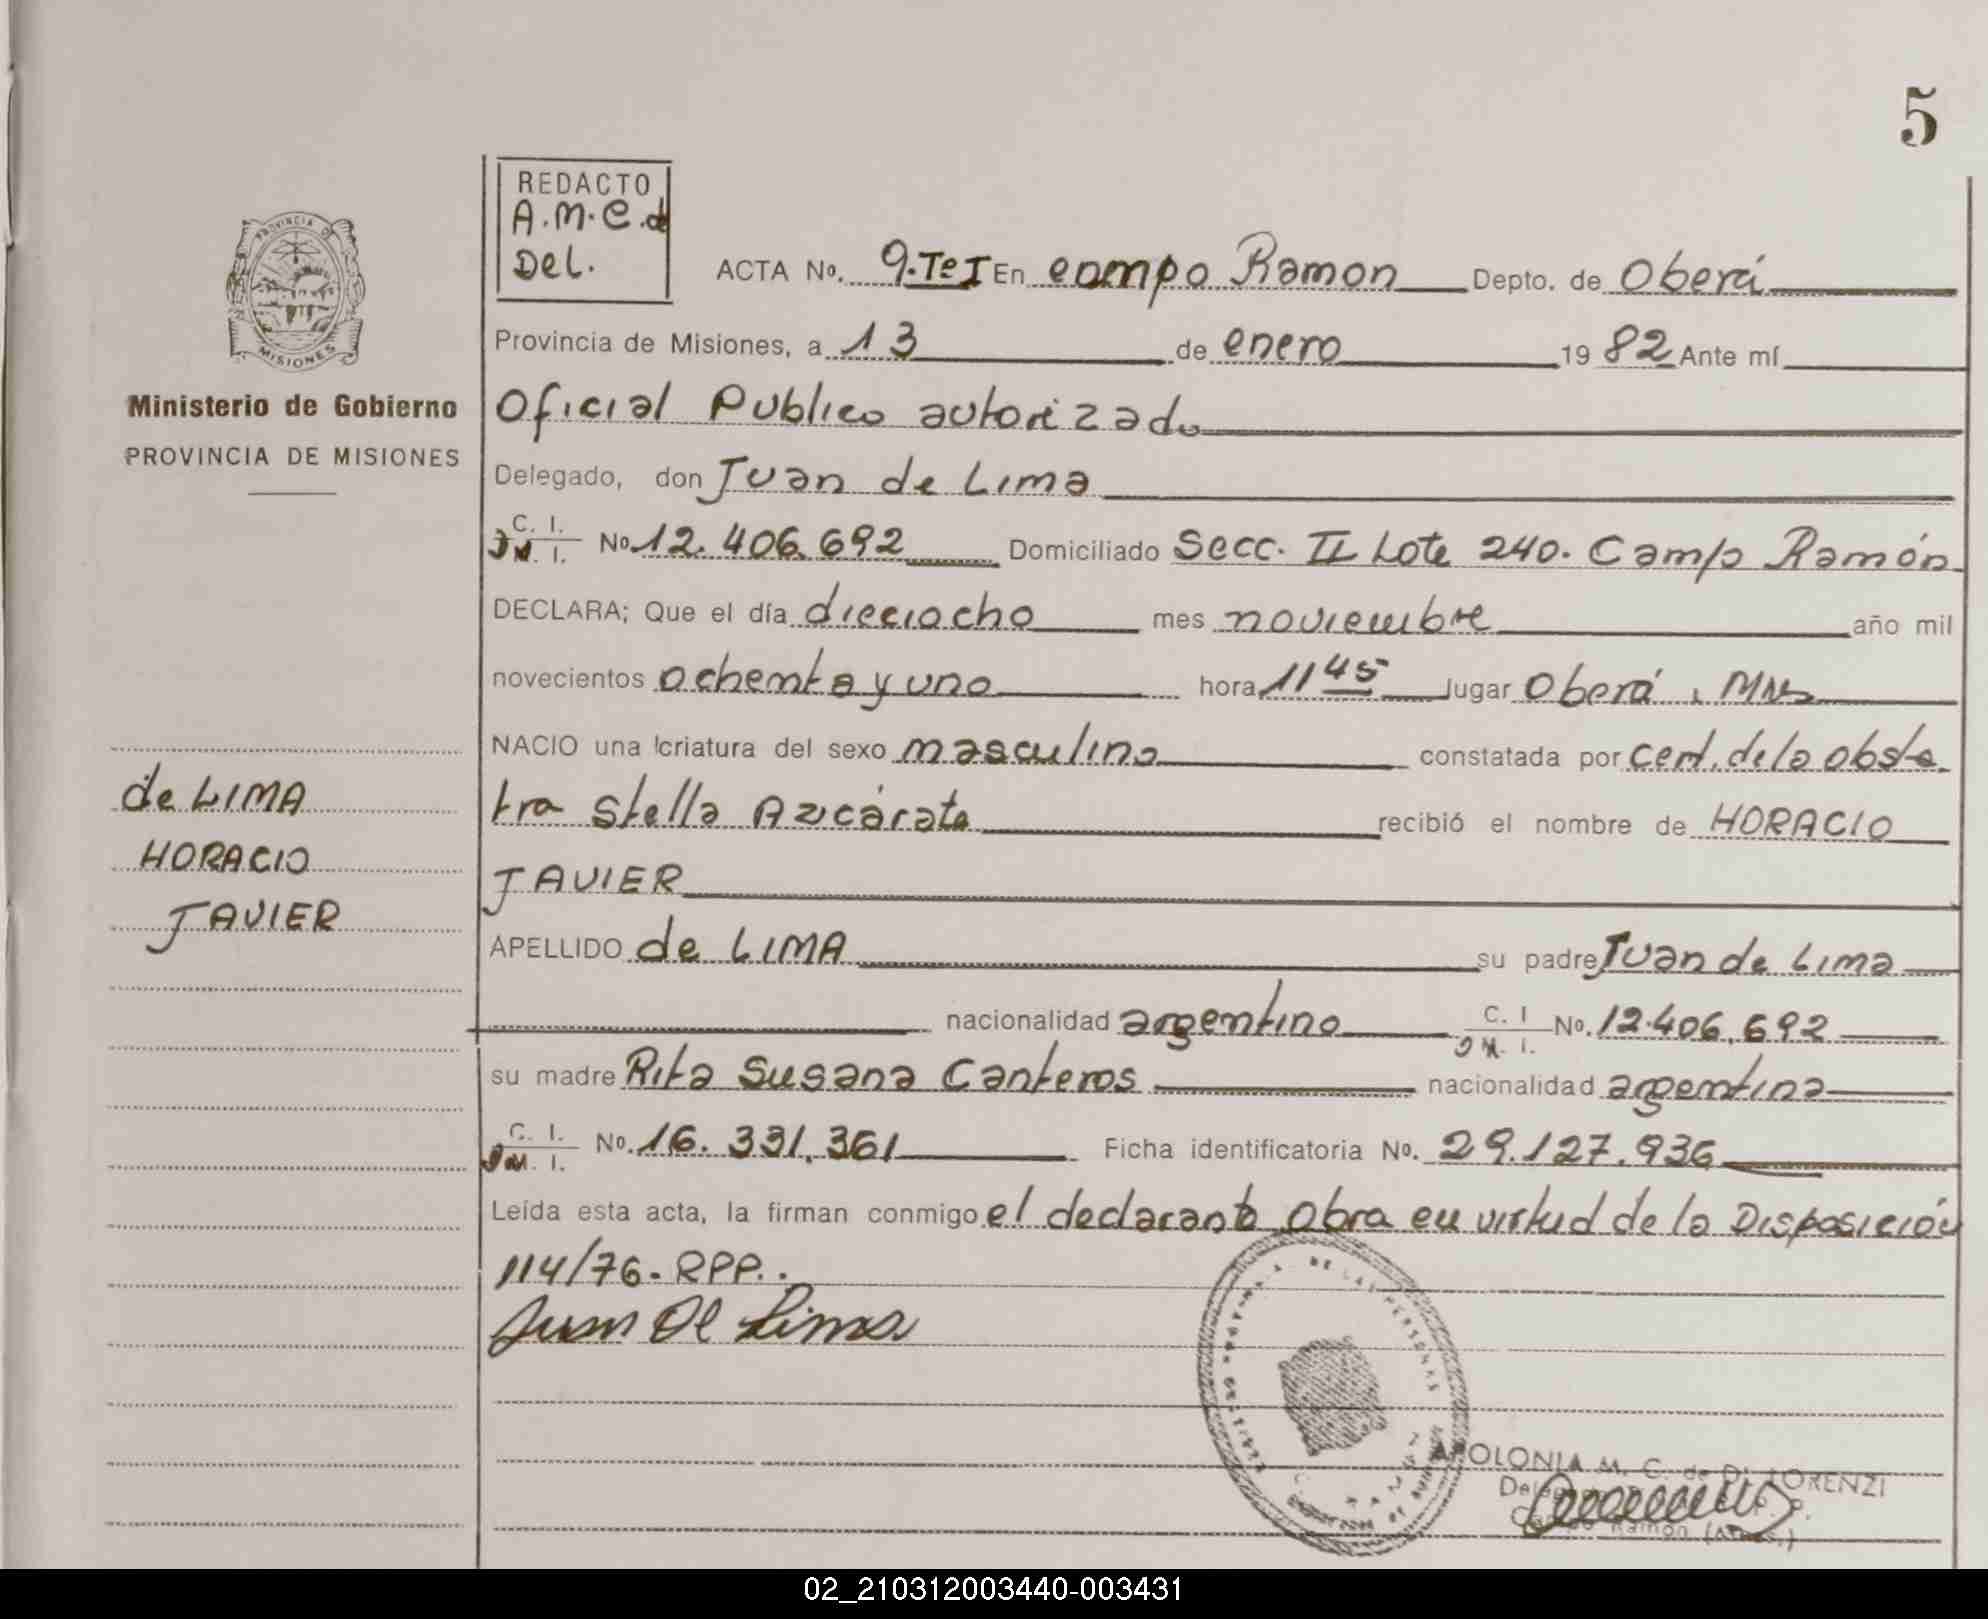 5
REDACTO
A.M.C.d
Del.
PROVINCIA DE
MISIONES
ACTA No. 9.TºI En campo Ramon Depto. de Oberá
Provincia de Misiones, a 13 de enero 1982 Ante mí
Ministerio de Gobierno
PROVINCIA DE MISIONES
Oficial Publico autorizado
Delegado, don Juan de Lima
C. I.
D M. I. No 12.406.692 Domiciliado Secc. II Lote 240. Campo Ramón
DECLARA; Que el día dieciocho mes noviembre año mil
novecientos ochenta y uno hora 11 45 lugar Oberá, Mns
NACIO una criatura del sexo masculino constatada por cert. de la obste
tra Stella Azcárate recibió el nombre de HORACIO
JAVIER
de LIMA
HORACIO
JAVIER
APELLIDO de LIMA su padre Juan de Lima
nacionalidad argentino C. I
D M. I. No. 12.406.692
su madre Rita Susana Canteros nacionalidad argentina
C. I.
D M. I. No. 16.331.361 Ficha identificatoria No. 29.127.936
Leída esta acta, la firman conmigo el declarante Obra en virtud de la Disposición
114/76. RPP..
Juan De Lima
DE LAS PERSONAS
APOLONIA M. C. de DI LORENZI
Campo Ramón (Mnes.)
02_210312003440-003431